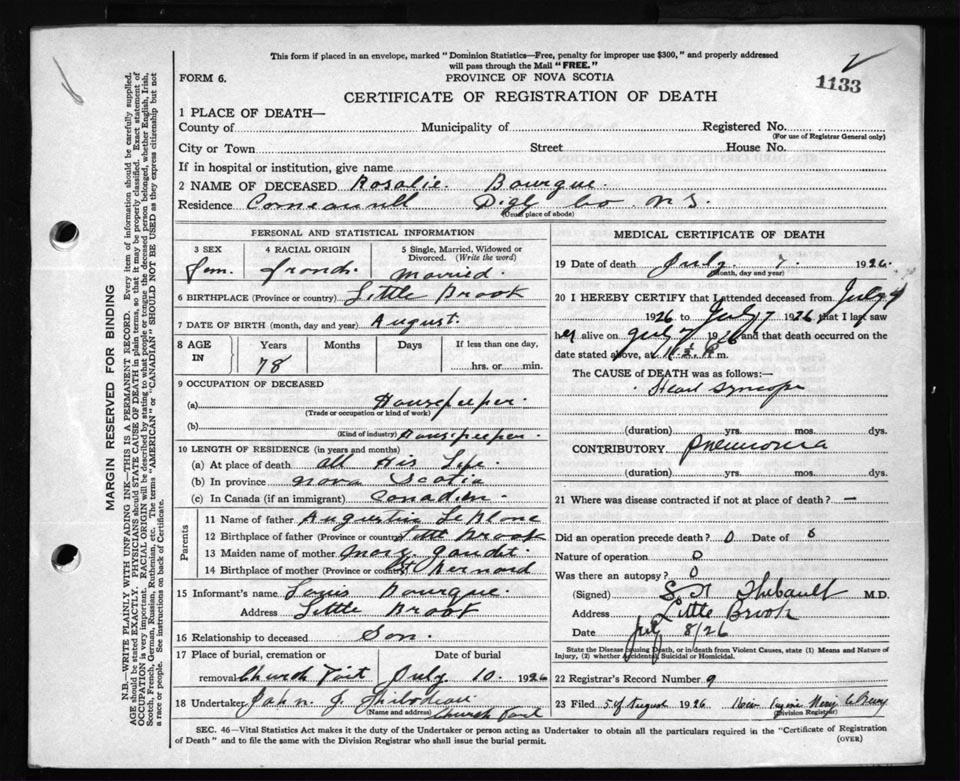 This form if placed in an envelope, marked "Dominion Statistics—Free, penalty for improper use $300," and properly addressed
will pass through the Mail "FREE."
FORM 6.
PROVINCE OF NOVA SCOTIA
1133
CERTIFICATE OF REGISTRATION OF DEATH
1 PLACE OF DEATH—
County of Municipality of Registered No.
(For use of Registrar General only)
City or Town Street House No.
If in hospital or institution, give name
2 NAME OF DECEASED Rosalie Bourque.
Residence Co. N.S.
(Usual place of abode)
PERSONAL AND STATISTICAL INFORMATION
3 SEX
Fem.
4 RACIAL ORIGIN
5 Single, Married, Widowed or
Divorced. (Write the word)
Married.
6 BIRTHPLACE (Province or country) Little Brook
7 DATE OF BIRTH (month, day and year) August.
8 AGE IN Years Months Days If less than one day,
78 hrs. or min.
9 OCCUPATION OF DECEASED
(a) Housekeeper.
(Trade or occupation or kind of work)
(b)
(Kind of industry) Housekeeper.
10 LENGTH OF RESIDENCE (in years and months)
(a) At place of death All His Life.
(b) In province Nova Scotia
(c) In Canada (if an immigrant) Canadien.
Parents
11 Name of father Augustin LeBlanc
12 Birthplace of father (Province or country) Little Brook
13 Maiden name of mother Mary Gaudet.
14 Birthplace of mother (Province or country) St Bernard
15 Informant's name Louis Bourque.
Address Little Brook
16 Relationship to deceased Son.
17 Place of burial, cremation or Date of burial
removal Church Point July 10. 1926
18 Undertaker John J. Thibodeau
(Name and address) Church Point
MEDICAL CERTIFICATE OF DEATH
19 Date of death July 1926.
(Month, day and year)
20 I HEREBY CERTIFY that I attended deceased from July
1926 to July 7 1926 that I last saw
her alive on July 7 1926 and that death occurred on the
date stated above, at m.
The CAUSE of DEATH was as follows:—
Heart syncope
(duration) yrs. mos. dys.
CONTRIBUTORY Pneumonia
(duration) yrs. mos. dys.
21 Where was disease contracted if not at place of death? —
Did an operation precede death? 0 Date of
Nature of operation 0
Was there an autopsy? 0
(Signed) Thibault M.D.
Address Little Brook
Date July 8/26
State the Disease causing Death, or in death from Violent Causes, state (1) Means and Nature of
Injury, (2) whether Accidental, Suicidal or Homicidal.
22 Registrar's Record Number 9
23 Filed 5 of August 1926
(Division Registrar)
SEC. 46—Vital Statistics Act makes it the duty of the Undertaker or person acting as Undertaker to obtain all the particulars required in the "Certificate of Registration
of Death" and to file the same with the Division Registrar who shall issue the burial permit.
(OVER)
MARGIN RESERVED FOR BINDING
N.B.—WRITE PLAINLY WITH UNFADING INK—THIS IS A PERMANENT RECORD. Every item of information should be carefully supplied.
AGE should be stated EXACTLY. PHYSICIANS should STATE CAUSE OF DEATH in plain terms, so that it may be properly classified. Exact statement of
OCCUPATION is very important. RACIAL ORIGIN will be described by stating to what people or tongue the deceased person belonged, whether English, Irish,
Scotch, French, German, Russian, Ruthenian, etc. The terms "AMERICAN" or "CANADIAN" SHOULD NOT BE USED as they express citizenship but not
a race or people. See instructions on back of Certificate.